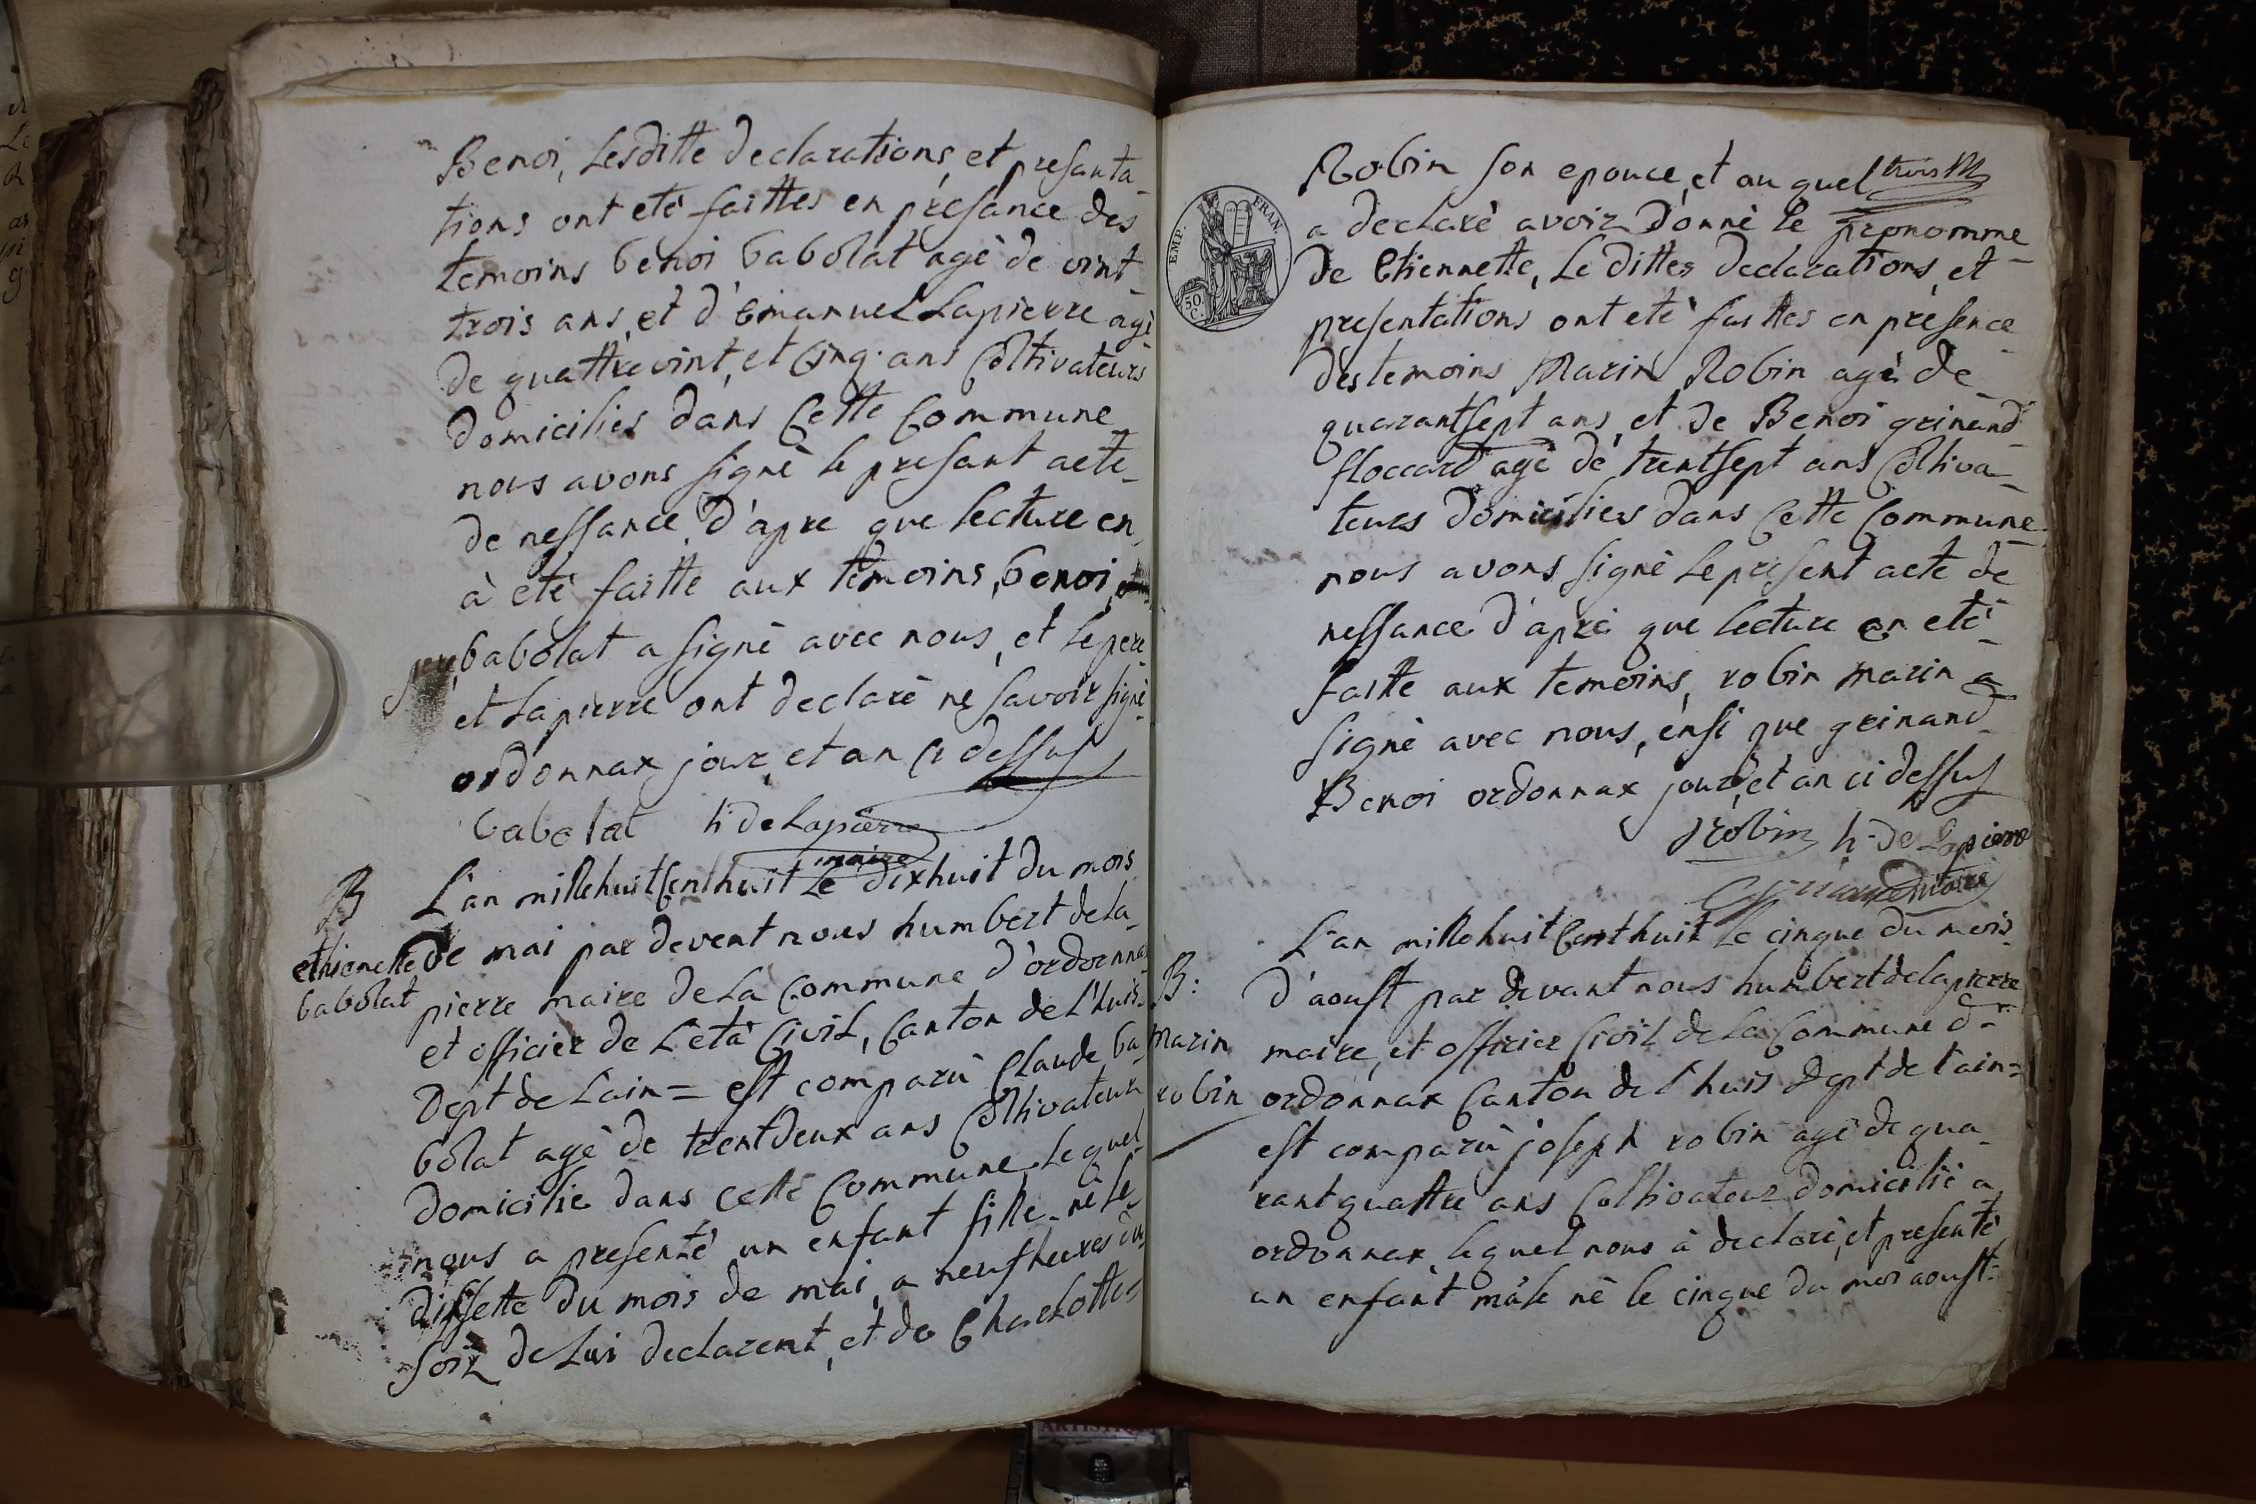 Benoi, Lesditte declarations, et presanta-
tions ont eté faittes en présance des
temoins benoi babolat agé de vint-
trois ans, et d'Emanuel Lapierre agé
de quattrevint, et Cinq ans Coltivateurs
domiciliés dans Cette Commune
nous avons signé le presant acte-
de nessance, d'apre que lecture en,
à eté faitte aux temoins, benoi
babolat a signé avec nous, et le pere-
et Lapierre ont declaré ne savoir signé-
ordonnax jour, et an Ci dessus
babolat h. de Lapierre
maire
B L'an millehuitCenthuit Le dixhuit du mois
ethienette de mai par devent nous humbert de la-
babolat pierre maire de La Commune d'ordonnax
et officier de L'età Civil, Canton de L'huis-
Dept de Lain = est comparù Claude ba-
bolat agé de trentdeux ans Coltivateur
domicilié dans cette Commune, Lequel
nous a presenté un enfant fille né le-
dissette du mois de mai, a neufheures du-
soir de Lui declarent, et de Charlottes
Robin son epouce, et au quel
a declaré avoir donné le pronomme-
de Etiennette, Le dittes declarations, et
presentations ont eté faittes en présence-
des temoins Marin Robin agé de-
quarantsept ans, et de Benoi grinand-
floccard agé de trentsept ans Coltiva-
teurs domiciliés dans Cette Commune
nous avons signé le present acte de
nessance d'apré que lecture en eté-
faitte aux temoins, robin marin a
signé avec nous, ensi que grinand-
Benoi ordonnax jour, et an ci dessus
robin h. de Lapierre
maire
L'an millehuitCenthuit Le cinque du mois-
B: d'aoust par devant nous humbert delapierre
Marin maire, et officier Civil de La Commune d'-
robin ordonnax Canton de l'huis Dept de l'ain=
est comparù joseph robin agé de qua-
rantquattre ans Coltivateur domicilié a
ordonnax, lequel nous à declaré, et presenté
un enfant mâle né le cinque du moi aoust-
EMP. FRAN.
50 C.